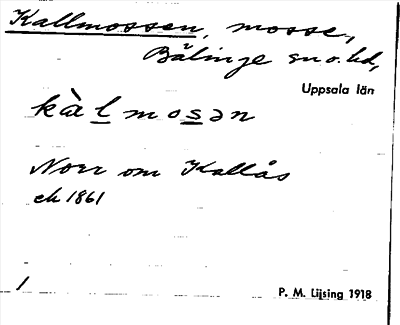 Kallmossen, mosse,
Bälinge sn o. hd,
Uppsala län
kàlmosən
Norr om Kallås
ek 1861
1
P. M. Liljsing 1918